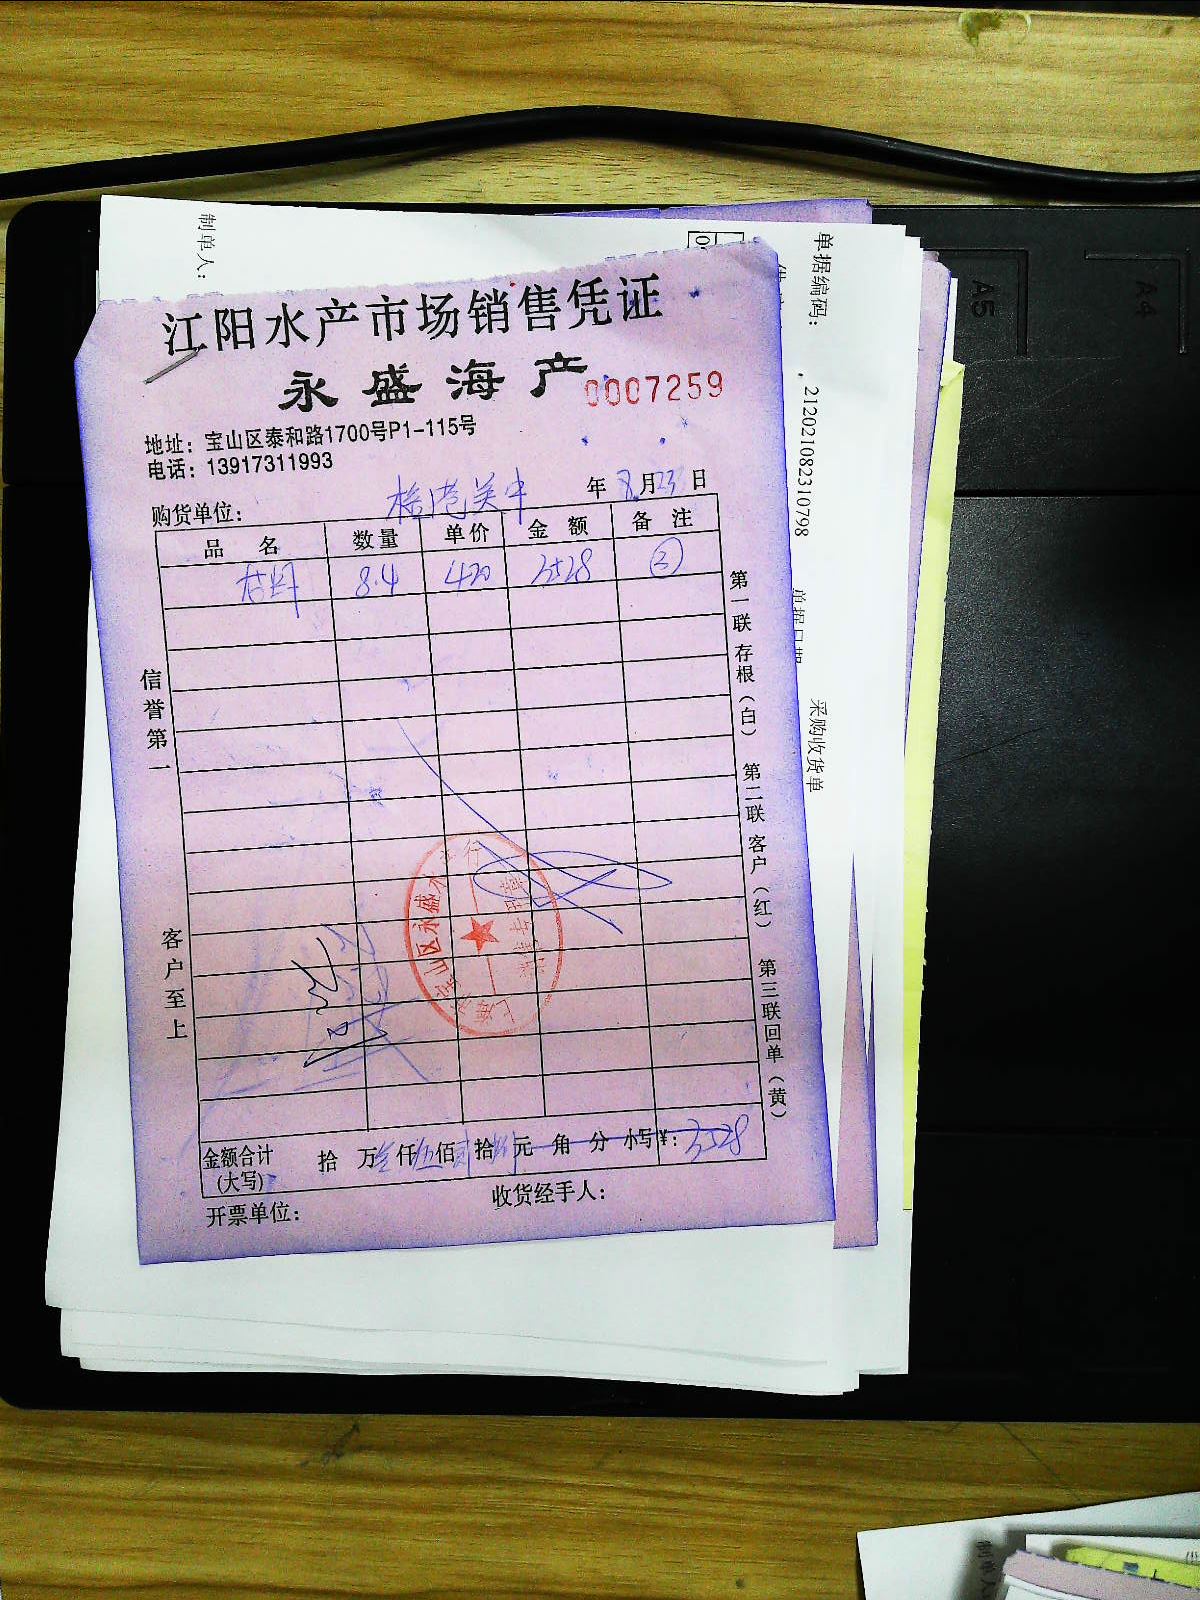 江阳水产市场销售凭证
永盛海产
0007259
地址：宝山区泰和路1700号P1-115号
电话：13917311993
购货单位：
年 8月23日
品 名 数量 单价 金 额 备 注
8.4 420 3528 ③
信誉第一
客户至上
第一联 存根（白） 第二联 客户（红） 第三联回单（黄）
金额合计 拾 万叁仟伍佰贰拾捌元 角 分 小写¥：3528
(大写)
开票单位：
收货经手人：
制单人：
单据编码：
212021082310798
单据日期
采购收货单
A5
A4